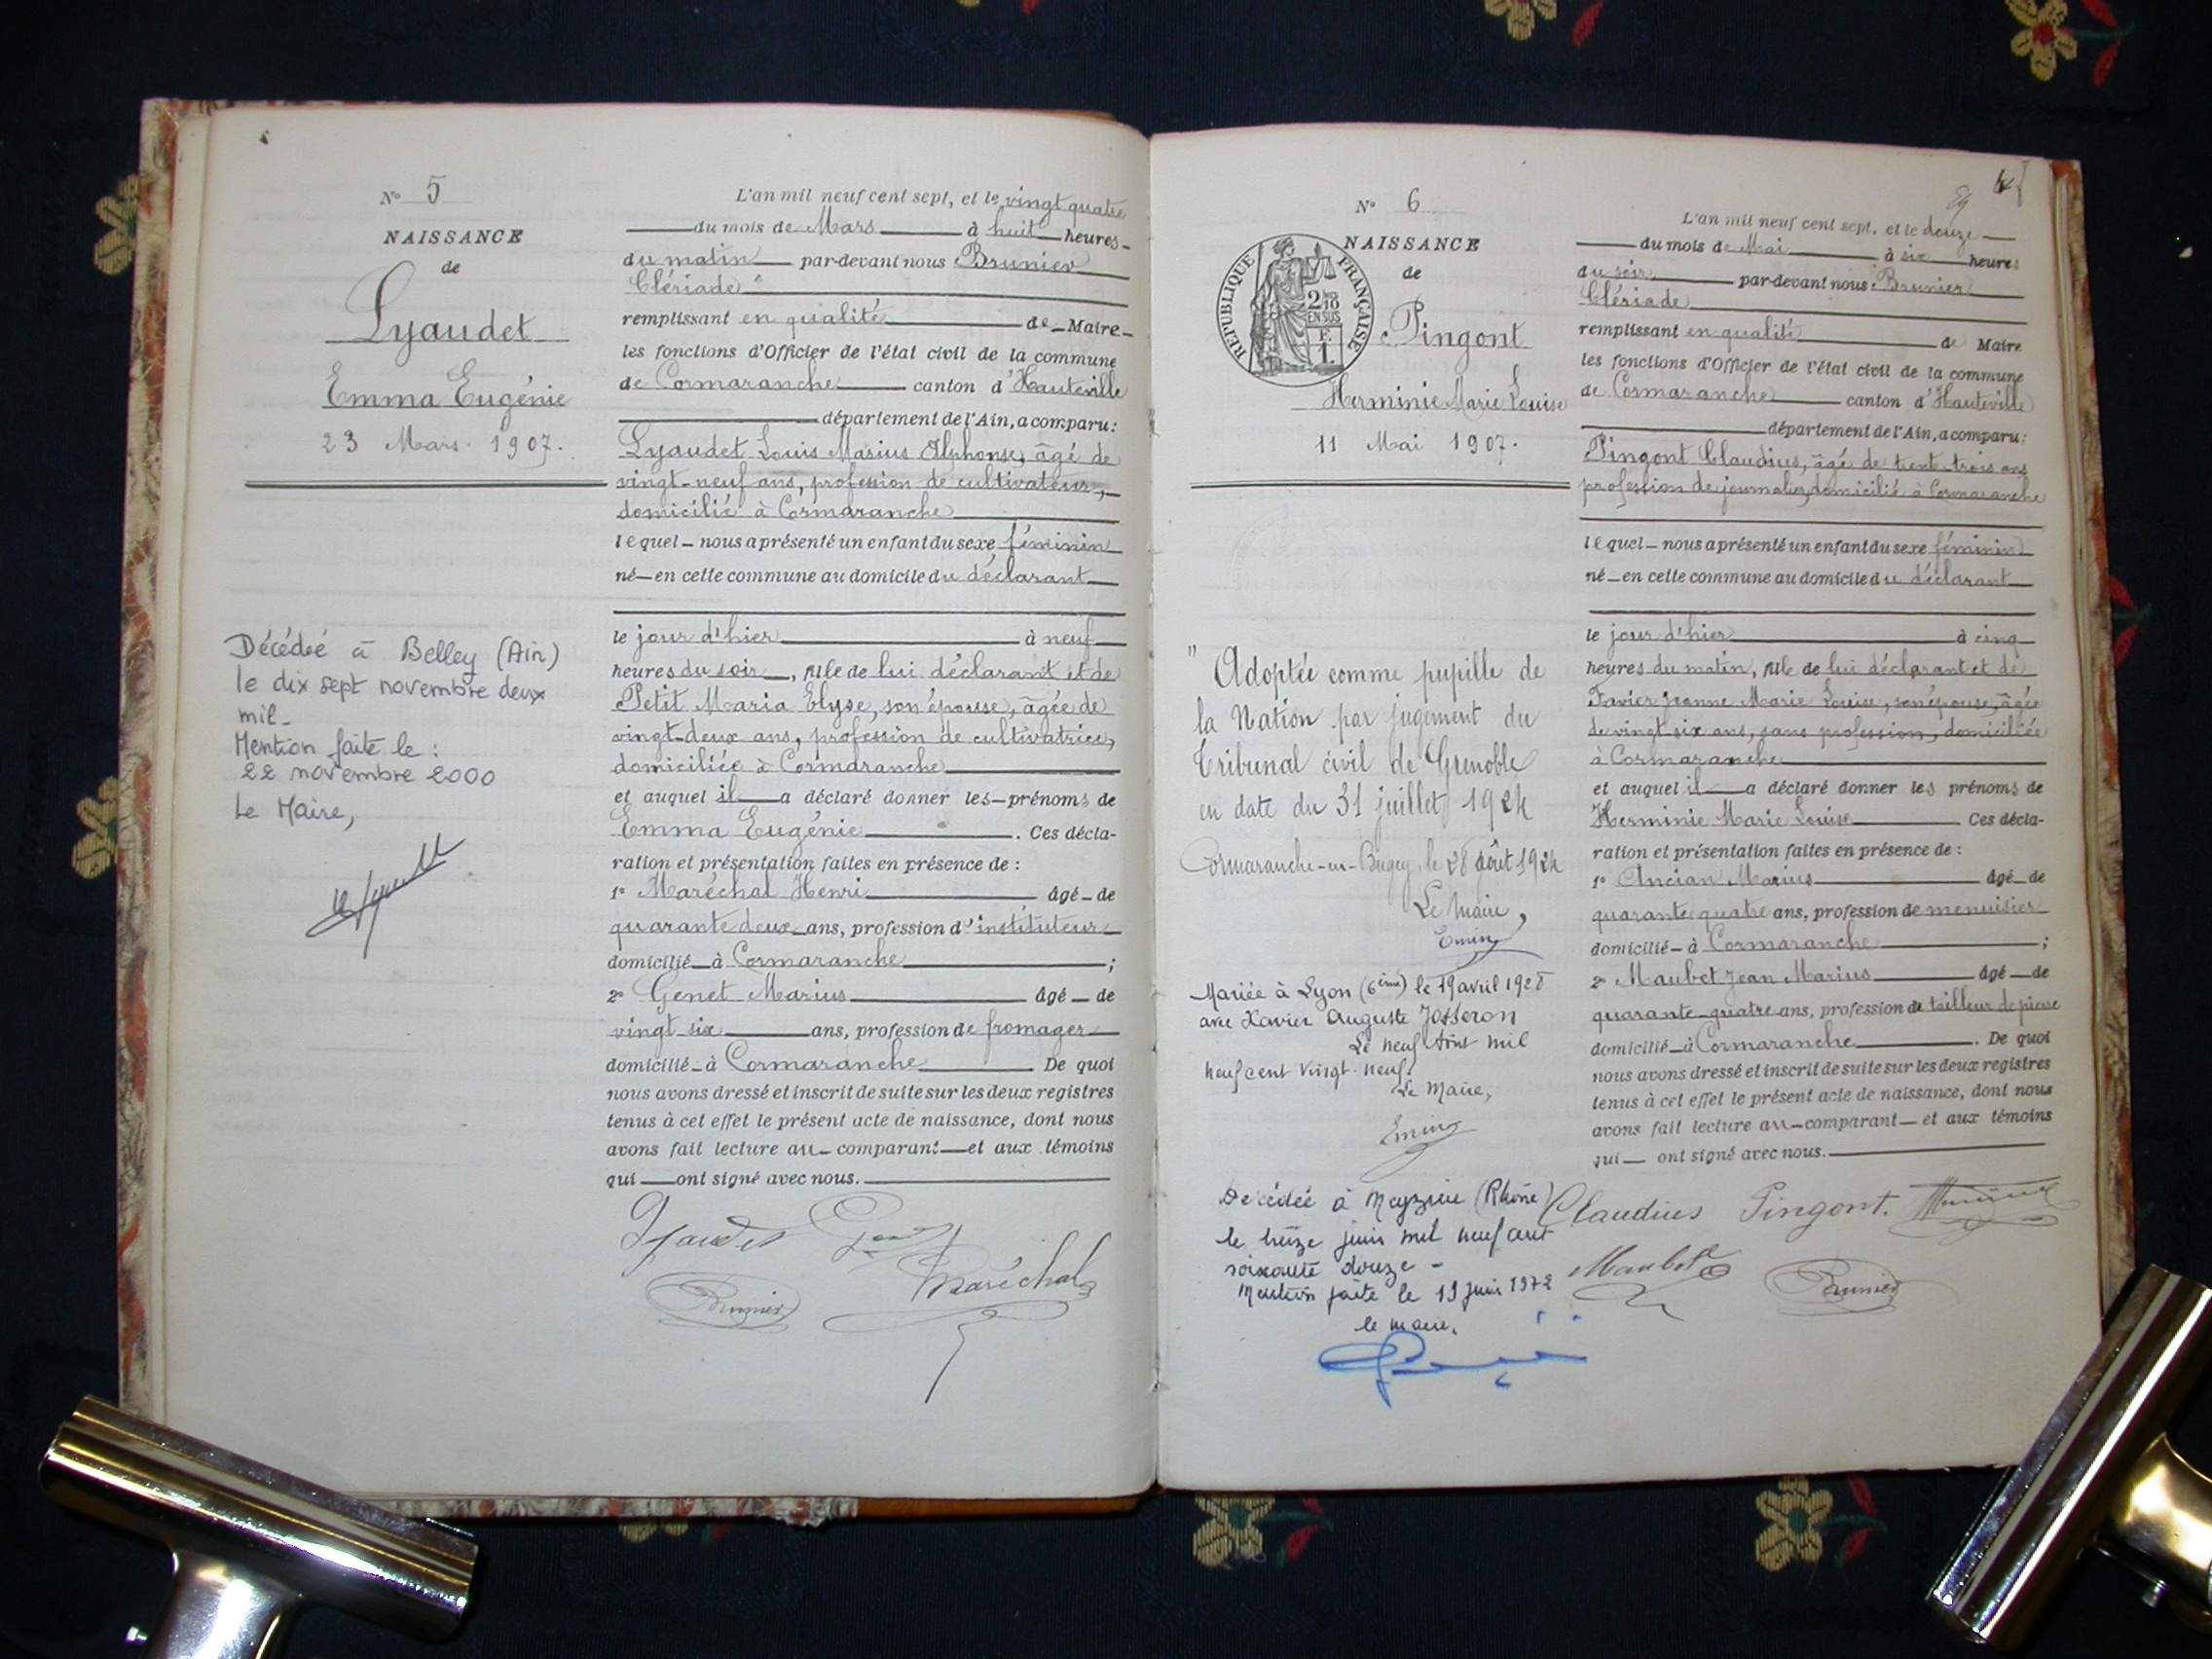 N° 5
NAISSANCE
de
Lyaudet
Emma Eugénie
23 Mars 1907.
Décédée à Belley (Ain)
le dix sept novembre deux
mil_
Mention faite le :
22 novembre 2000
Le Maire,
L'an mil neuf cent sept, et le vingt quatre
du mois de Mars à huit heures
du matin par-devant nous Brunier
Clériade
remplissant en qualité de Maire
les fonctions d'Officier de l'état civil de la commune
de Cormaranche canton d'Hauteville
département de l'Ain, a comparu :
Lyaudet Louis Marius Alphonse, âgé de
vingt-neuf ans, profession de cultivateur,
domicilié à Cormaranche
lequel nous a présenté un enfant du sexe féminin
né en cette commune au domicile du déclarant
le jour d'hier à neuf
heures du soir, fille de lui déclarant et de
Petit Maria Elyse, son épouse, âgée de
vingt-deux ans, profession de cultivatrice,
domiciliée à Cormaranche
et auquel il a déclaré donner les prénoms de
Emma Eugénie. Ces décla-
ration et présentation faites en présence de :
1° Maréchal Henri âgé de
quarante deux ans, profession d'instituteur
domicilié à Cormaranche ;
2° Genet Marius âgé de
vingt six ans, profession de fromager
domicilié à Cormaranche. De quoi
nous avons dressé et inscrit de suite sur les deux registres
tenus à cet effet le présent acte de naissance, dont nous
avons fait lecture au comparant et aux témoins
qui ont signé avec nous.
Lyaudet
Maréchal
Brunier
N° 6
NAISSANCE
de
RÉPUBLIQUE FRANÇAISE
2/10 EN SUS
F. 1.
Pingont
Herminie Marie Louise
11 Mai 1907.
"Adoptée comme pupille de
la Nation par jugement du
Tribunal civil de Grenoble
en date du 31 juillet 1924
Cormaranche-en-Bugey, le 28 août 1924
Le Maire,
Emin
Mariée à Lyon (6ème) le 19 avril 192
avec Xavier Auguste Josseron
Le neuf Août mil
neuf cent vingt-neuf.
Le Maire,
Emin
Décédée à Meyzieu (Rhône)
le treize juin mil neuf cent
soixante douze -
Mention faite le 19 juin 1972
le maire,
L'an mil neuf cent sept, et le douze
du mois de Mai à six heures
du soir par-devant nous Brunier
Clériade
remplissant en qualité de Maire
les fonctions d'Officier de l'état civil de la commune
de Cormaranche canton d'Hauteville
département de l'Ain, a comparu :
Pingont Claudius, âgé de trent-trois ans
profession de journalier, domicilié à Cormaranche
lequel nous a présenté un enfant du sexe féminin
né en cette commune au domicile du déclarant
le jour d'hier à cinq
heures du matin, fille de lui déclarant et de
Favier Jeanne Marie Louise, son épouse, âgée
de vingt six ans, sans profession, domiciliée
à Cormaranche
et auquel il a déclaré donner les prénoms de
Herminie Marie Louise Ces décla-
ration et présentation faites en présence de :
1° Ancian Marius âgé de
quarante quatre ans, profession de menuisier
domicilié à Cormaranche ;
2° Maubet Jean Marius âgé de
quarante-quatre ans, profession de tailleur de pierre
domicilié à Cormaranche. De quoi
nous avons dressé et inscrit de suite sur les deux registres
tenus à cet effet le présent acte de naissance, dont nous
avons fait lecture au comparant et aux témoins
qui ont signé avec nous.
Claudius Pingont.
Maubet
Brunier